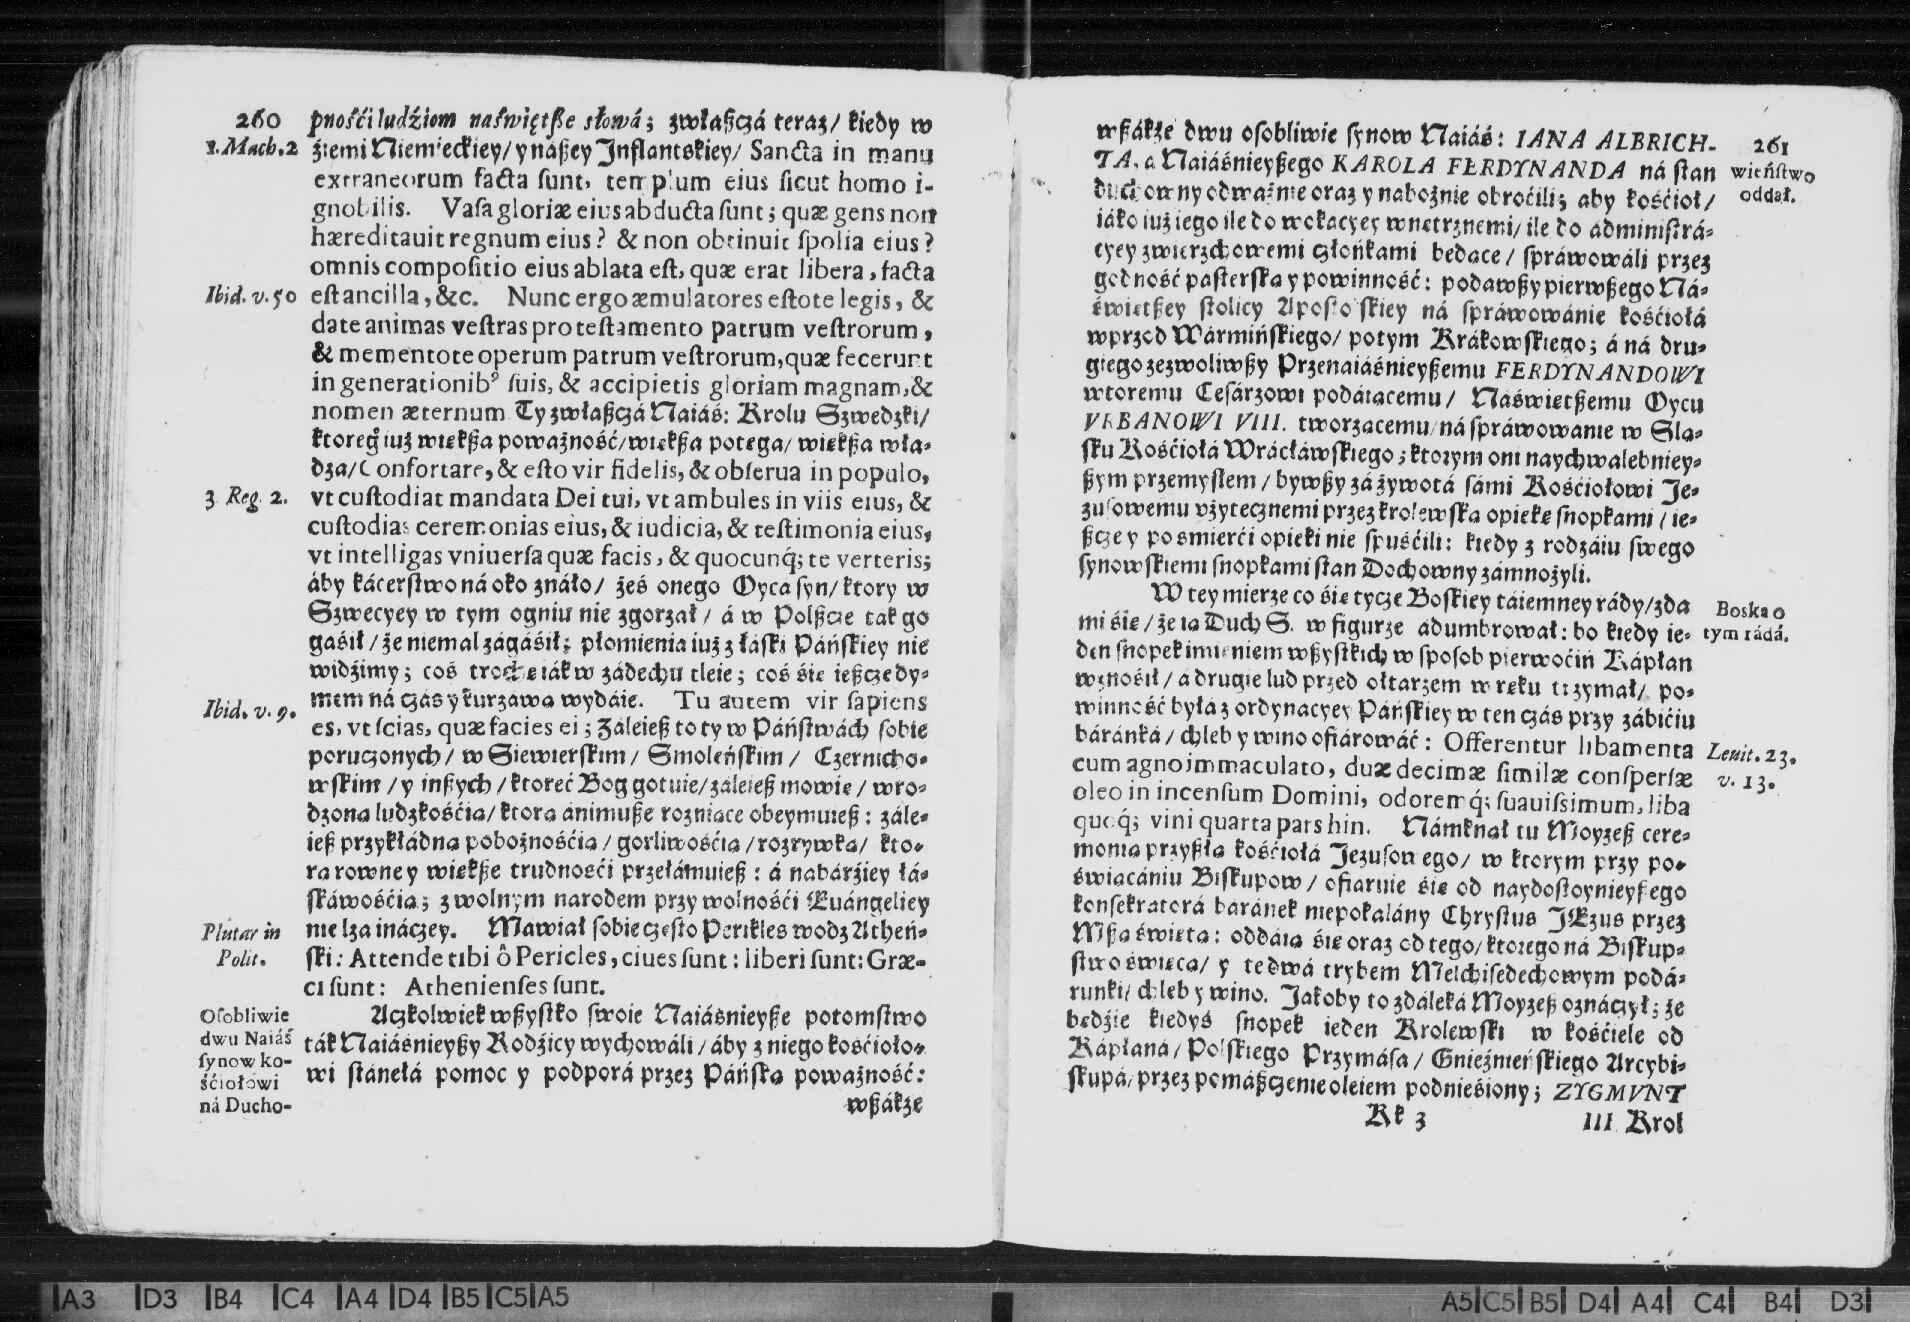 260
pnośći ludźiom naświętße słowá; zwłaßczá teraz/ kiedy w
1. Mach. 2
źiemi Niemieckiey/ y náßey Inflantskiey/ Sancta in manu
extraneorum facta sunt, templum eius sicut homo i-
gnobilis. Vasa gloriæ eius abducta sunt; quæ gens non
hæreditauit regnum eius? & non obtinuit spolia eius?
omnis compositio eius ablata est, quæ erat libera, facta
Ibid. v. 50
est ancilla, &c. Nunc ergo æmulatores estote legis, &
date animas vestras pro testamento patrum vestrorum,
& mementote operum patrum vestrorum, quæ fecerunt
in generationib⁹ suis, & accipietis gloriam magnam, &
nomen æternum. Ty zwłaßczá Naiáś: Krolu Szwedzki/
ktoreg̊ iuż wiekßa poważność/ wiekßa potega/ wiekßa wła-
dza/ Confortare, & esto vir fidelis, & obserua in populo,
3. Reg. 2.
vt custodiat mandata Dei tui, vt ambules in viis eius, &
custodias ceremonias eius, & iudicia, & testimonia eius,
vt intelligas vniuersa quæ facis, & quocunq́; te verteris;
áby kácerstwo ná oko znáło/ żeś onego Oyca syn/ ktory w
Szwecyey w tym ogniu nie zgorzał/ á w Polßcze tak go
gáśił/ że niemal zágáśił; płomienia iuż z łáski Páńskiey nie
widźimy; coś troche iák w zádechu tleie; coś śie ießcze dy-
mem ná czás y kurzawa wydáie. Tu autem vir sapiens
Ibid. v. 9.
es, vt scias, quæ facies ei; Záleieß to ty w Páństwách sobie
poruczonych/ w Siewierskim/ Smoleńskim/ Czernicho-
wskim/ y inßych/ ktoreć Bog gotuie/ záleieß mowie/ wro-
dzona ludzkośćia/ ktora ánimuße rozniace obeymuieß: zále-
ieß przykłádna pobożnośćia/ gorliwośćia/ rozrywka/ kto-
ra rowne y wiekße trudnośći przełámuieß: á nabárźiey łá-
skáwośćia; z wolnym narodem przy wolnośći Euángeliey
Plutar in
Polit.
nie lza ináczey. Mawiał sobie często Perikles wodz Atheń-
ski: Attende tibi ô Pericles, ciues sunt: liberi sunt: Græ-
ci sunt: Athenienses sunt.
Osobliwie
dwu Naiáś
synow ko-
śćiołowi
ná Ducho-
Aczkolwiek wßystko swoie Naiáśnieyße potomstwo
ták Naiáśnieyßy Rodźicy wychowáli/ áby z niego kośćioło-
wi stánełá pomoc y podporá przez Páńska poważność:
wßákże
261
wßákże dwu osobliwie synow Naiáś: IANA ALBRICH-
TA, a Naiáśnieyßego KAROLA FERDYNANDA ná stan
wieństwo
oddał.
duchowny odważnie oraz y nabożnie obroćili; aby kośćioł/
iáko iuż iego ile do wokacyey wnetrznemi/ ile do administrá-
cyey zwierzchowemi członkami bedace/ spráwowáli przez
godność pasterska y powinność: podawßy pierwßego Ná-
świetßey stolicy Apostolskiey ná spráwowánie kośćiołá
wprzod Wármińskiego/ potym Krákowskiego; á ná dru-
giego zezwoliwßy Przenaiáśnieyßemu FERDYNANDOWI
wtoremu Cesárzowi podáiacemu/ Náświetßemu Oycu
VRBANOWI VIII. tworzacemu/ ná spráwowanie w Sla-
sku Kośćiołá Wrácłáwskiego; ktorym oni naychwalebniey-
ßym przemysłem/ bywßy zá żywotá sámi Kośćiołowi Je-
zusowemu vżytecznemi przez krolewska opieke snopkami/ ie-
ßcze y po śmierći opieki nie spuśćili: kiedy z rodzáiu swego
synowskiemi snopkami stan Dochowny zámnożyli.
W tey mierze co śie tycze Boskiey táiemney rády/ zda
Boska o
tym rádá.
mi śie/ że ia Duch S. w figurze adumbrował: bo kiedy ie-
den snopek imieniem wßystkich w sposob pierwoćin Kápłan
wznośił/ á drugie lud przed ołtarzem w reku trzymał/ po-
winność byłá z ordynacyey Páńskiey w ten czás przy zábićiu
báránká/ chleb y wino ofiárowáć: Offerentur libamenta
Leuit. 23.
v. 13.
cum agno immaculato, duæ decimæ similæ conspersæ
oleo in incensum Domini, odoremq́; suauissimum, liba
quoq́; vini quarta pars hin. Námknał tu Moyzeß cere-
monia przyßła kośćiołá Jezusowego/ w ktorym przy po-
świacániu Biskupow/ ofiaruie śie od naydostoynieyßego
konsekratorá baránek niepokalány Chrystus JEzus przez
Mßa świeta: oddáia śie oraz od tego/ ktorego ná Biskup-
stwo świeca/ y te dwá trybem Melchisedechowym podá-
runki/ chleb y wino. Jakoby to zdáleká Moyzeß oznáczył; że
będźie kiedyś snopek ieden Krolewski w kośćiele od
Kápłaná/ Polskiego Przymásá/ Gnieźnieńskiego Arcybi-
skupá/ przez pomáßczenie oleiem podnieśiony; ZYGMVNT
Kk 3
III. Krol
A3 D3 B4 C4 A4 D4 B5 C5 A5
A5 C5 B5 D4 A4 C4 B4 D3